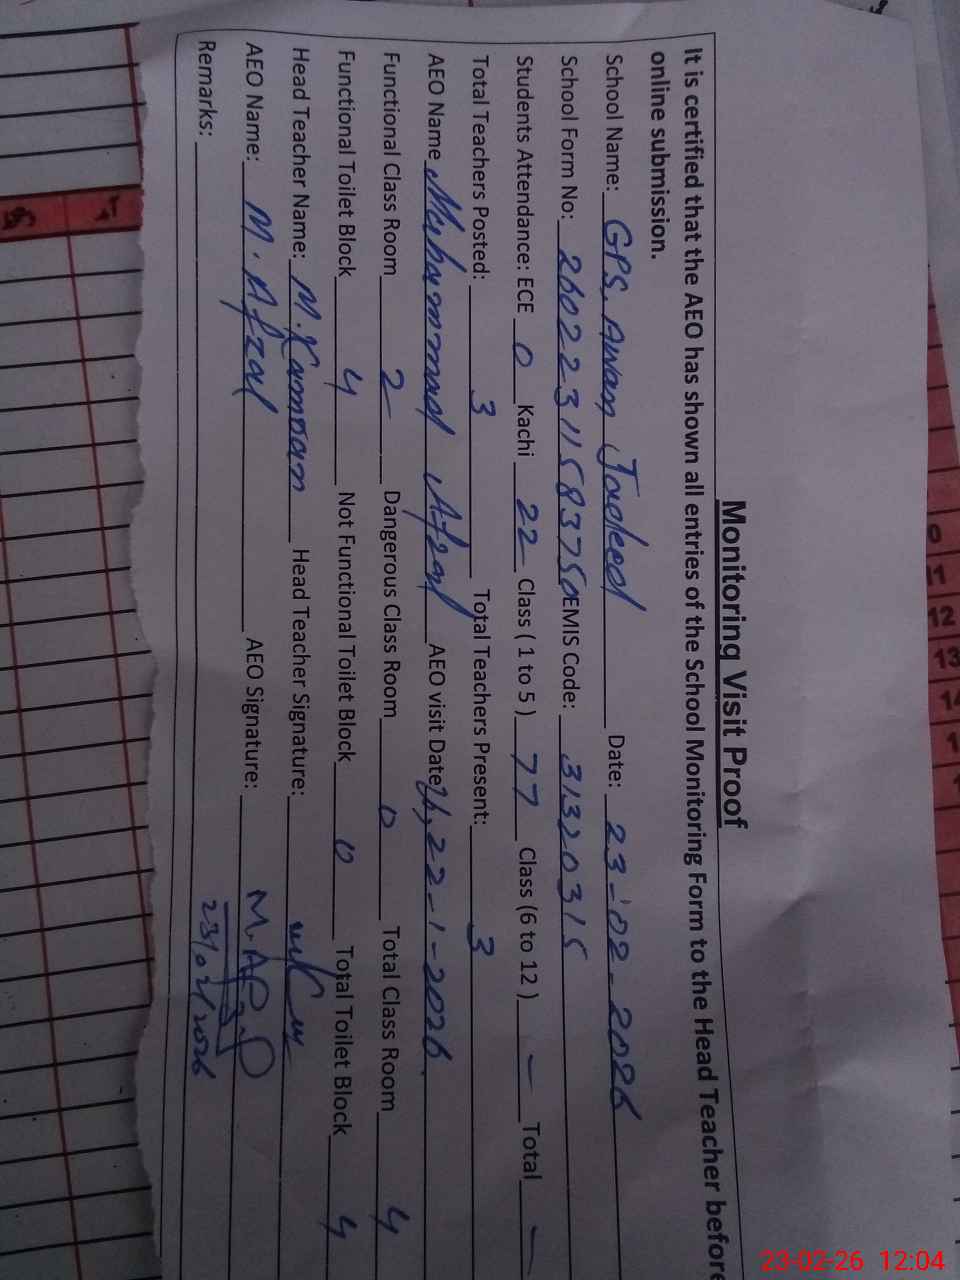 Monitoring Visit Proof
It is certified that the AEO has shown all entries of the School Monitoring Form to the Head Teacher before
online submission.
School Name: GPS. Awan Jadeed Date: 23-02-2026
School Form No: 26022311583750 EMIS Code: 31320315
Students Attendance: ECE 0 Kachi 22 Class ( 1 to 5 ) 77 Class (6 to 12 ) - Total -
Total Teachers Posted: 3 Total Teachers Present: 3
AEO Name Muhammad Afzal AEO visit Date 22-1-2026.
Functional Class Room 2 Dangerous Class Room 0 Total Class Room 4
Functional Toilet Block 4 Not Functional Toilet Block 0 Total Toilet Block 4
Head Teacher Name: M. Kamran Head Teacher Signature:
AEO Name: M. Afzal AEO Signature: M. Afzal
Remarks: 23/02/2026
9
11
12
13
14
23-02-26 12:04